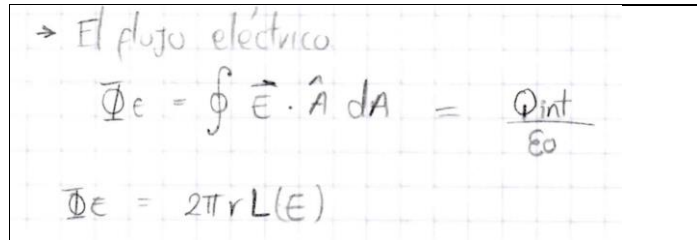 → El flujo eléctrico
Φε = ∮ E⃗ · Â dA = Qint / εo
Φε = 2πrL(E)